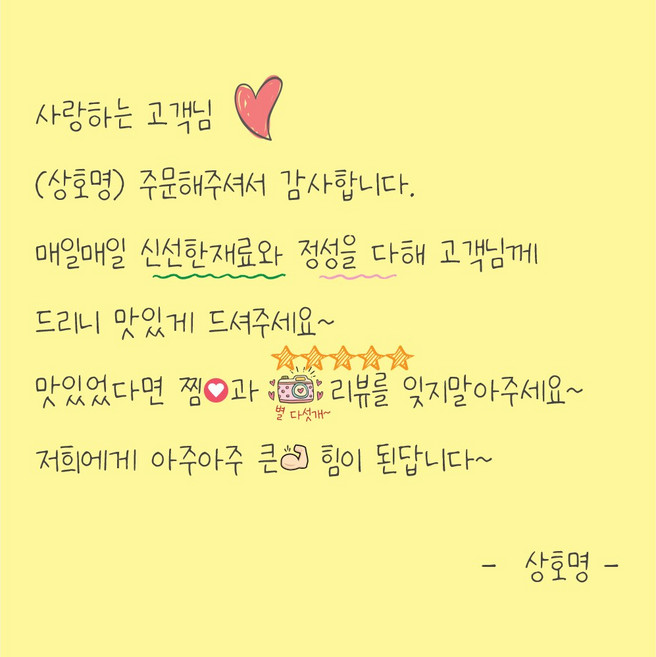 사랑하는 고객님
(상호명) 주문해주셔서 감사합니다.
매일매일 신선한재료와 정성을 다해 고객님께
드리니 맛있게 드셔주세요~
맛있었다면 찜과 리뷰를 잊지말아주세요~
별 다섯개~
저희에게 아주아주 큰 힘이 된답니다~
- 상호명 -